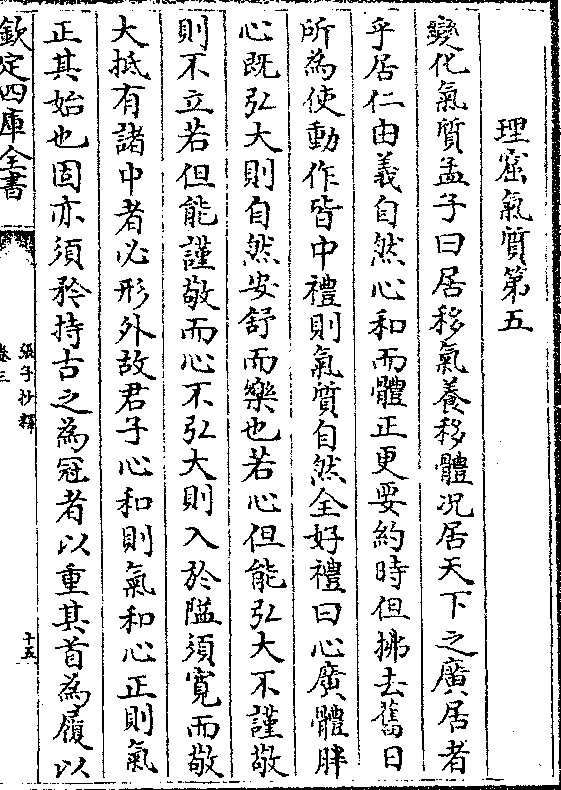 理窟氣質第五
變化氣質孟子曰居移氣養移體况居天下之廣居者
乎居仁由義自然心和而體正更要約時但拂去舊日
所為使動作皆中禮則氣質自然全好禮曰心廣體胖
心既弘大則自然安舒而樂也若心但能弘大不謹敬
則不立若但能謹敬而心不弘大則入於隘須寬而敬
大抵有諸中者必形外故君子心和則氣和心正則氣
正其始也固亦須矜持古之為冠者以重其首為履以
欽定四庫全書
張子抄釋
卷三
十五